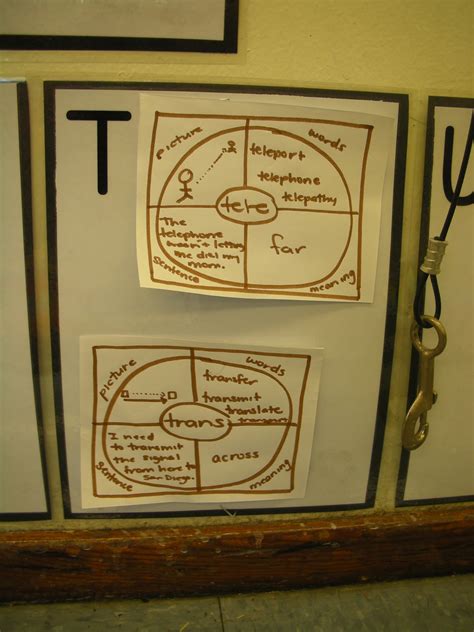 T
picture
words
teleport
telephone
telepathy
tele
The
telephone
wasn't letting
me dial my
mom.
far
sentence
meaning
picture
words
transfer
transmit
translate
trans
I need
to transmit
the signal
from here to
San Diego.
across
sentence
meaning